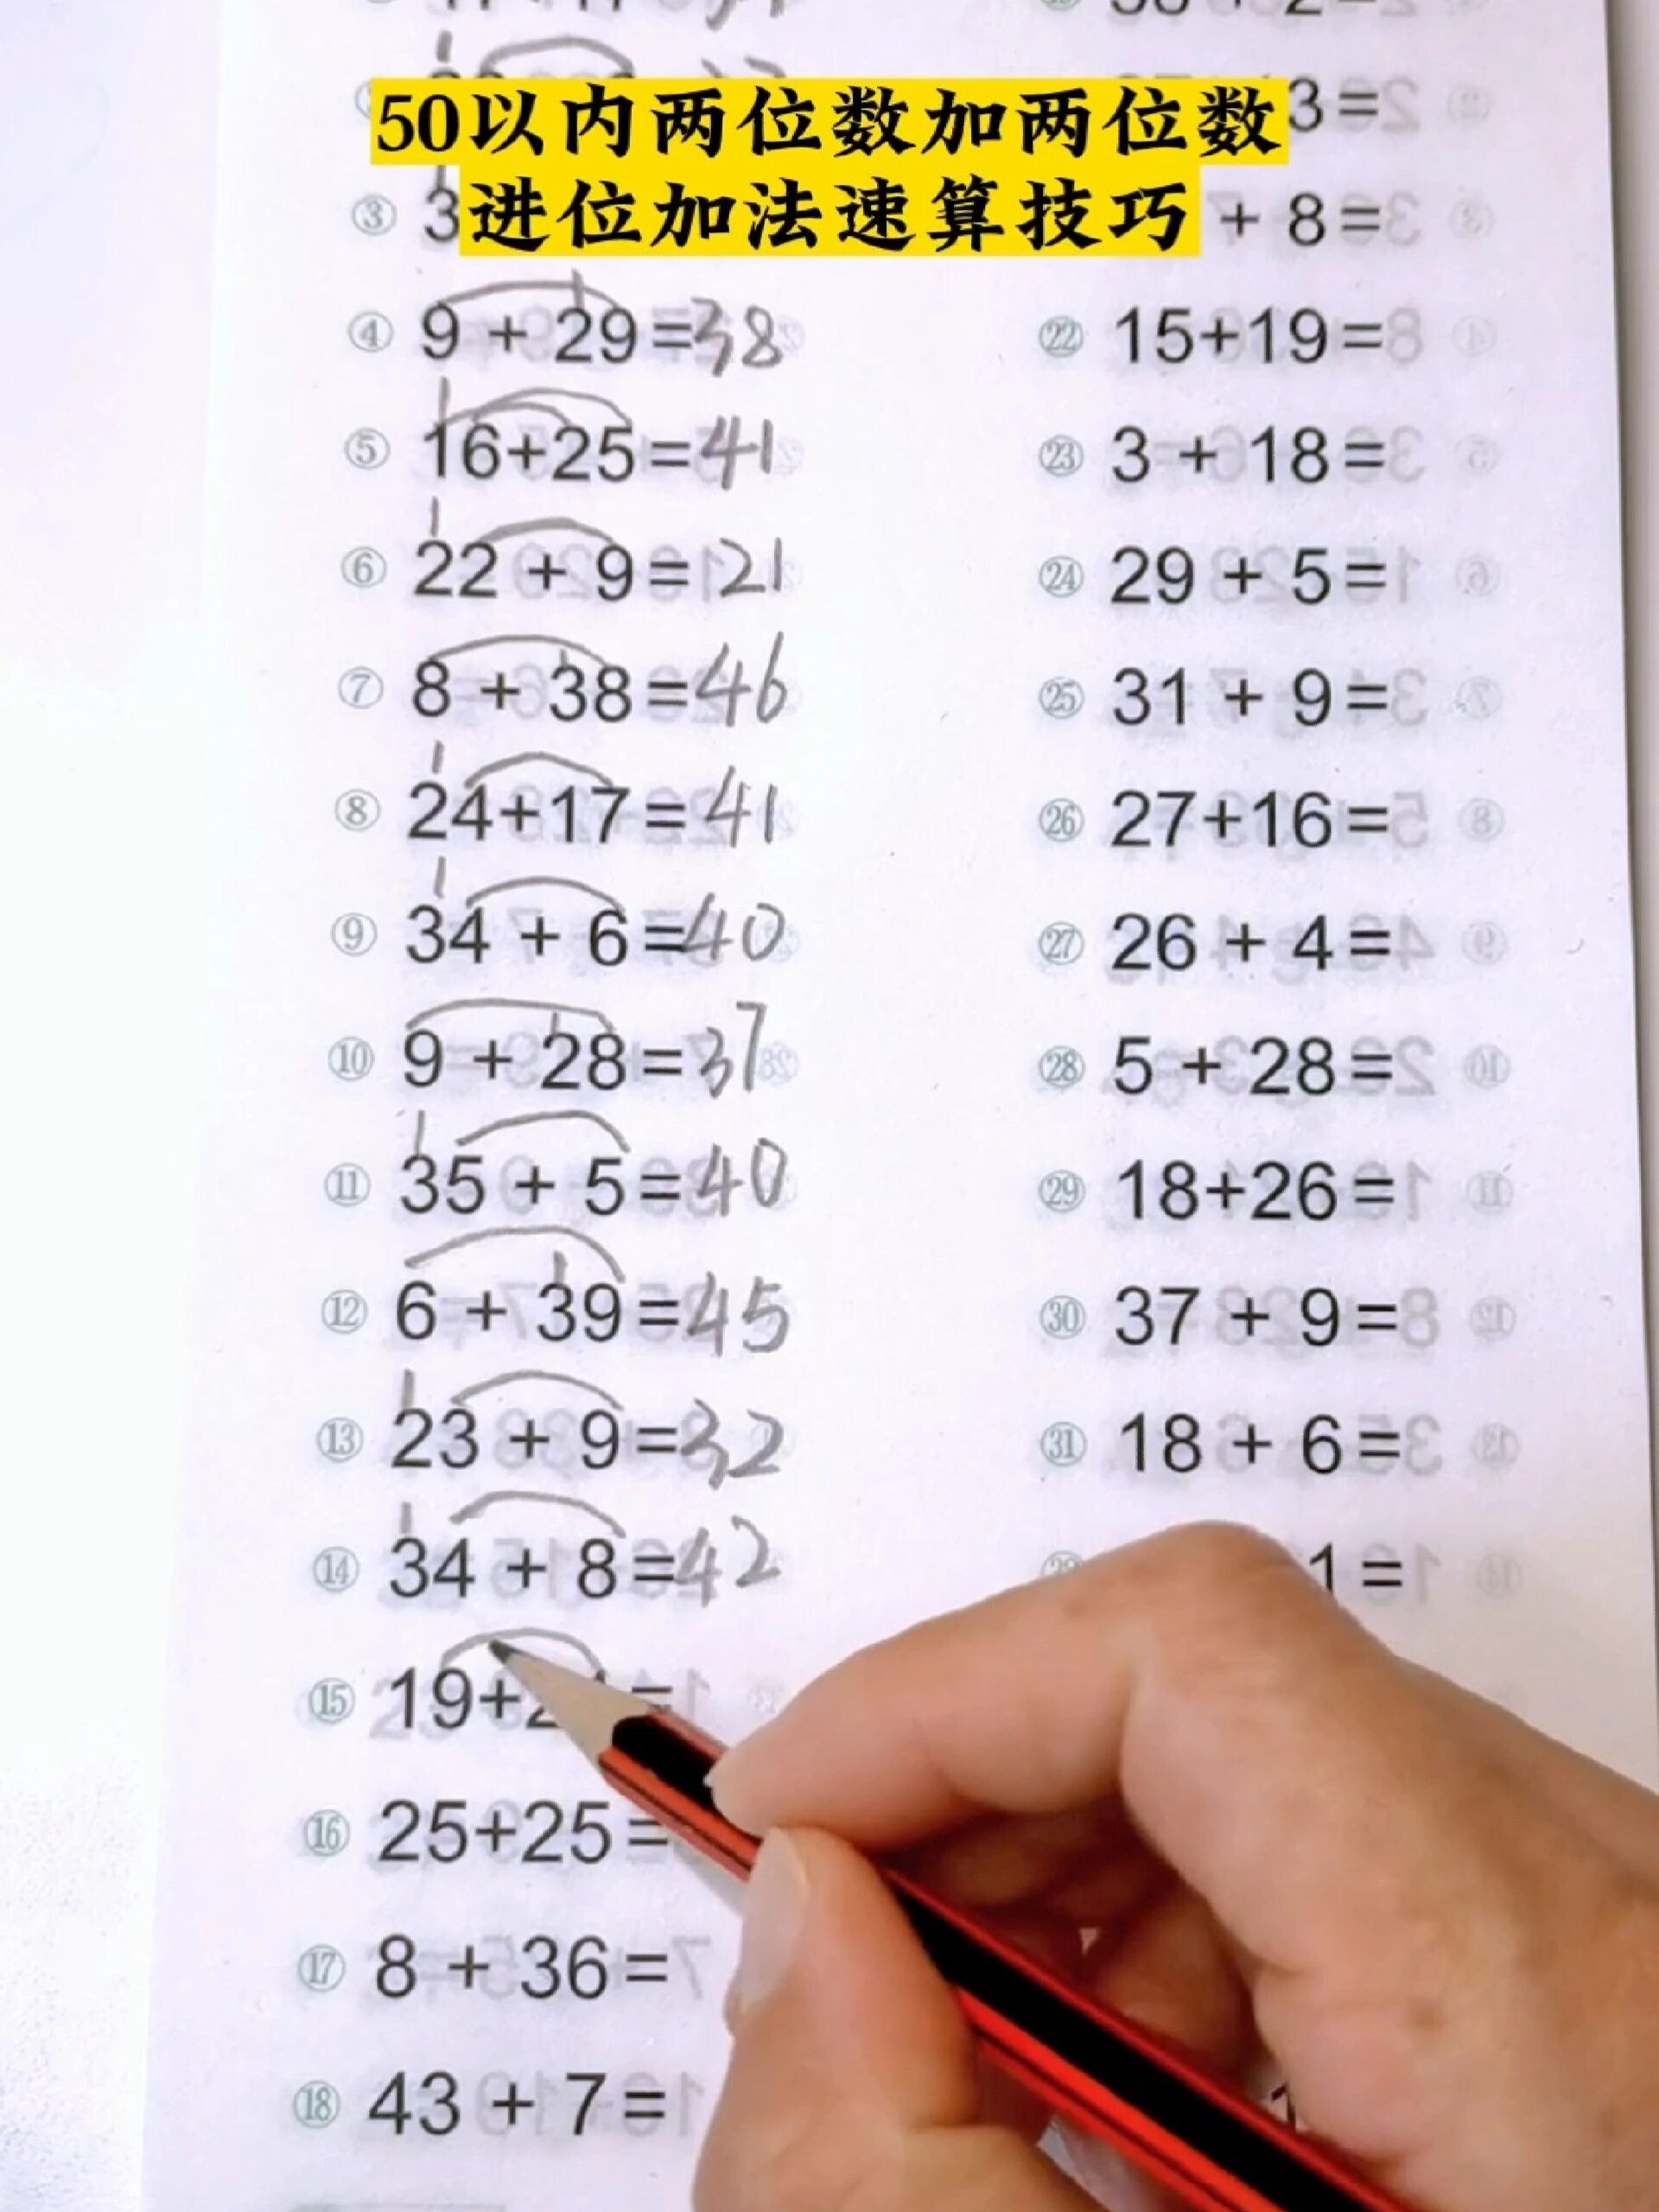 50以内两位数加两位数
进位加法速算技巧
3=
③ 3
+ 8=
④ 9 + 29=38
⑤ 16+25=41
⑥ 22 + 9=21
⑦ 8 + 38=46
⑧ 24+17=41
⑨ 34 + 6=40
⑩ 9 + 28=37
⑪ 35 + 5=40
⑫ 6 + 39=45
⑬ 23 + 9=32
⑭ 34 + 8=42
⑮ 19+2
⑯ 25+25=
⑰ 8 + 36=
⑱ 43 + 7=
㉒ 15+19=
㉓ 3 + 18=
㉔ 29 + 5=
㉕ 31 + 9=
㉖ 27+16=
㉗ 26 + 4=
㉘ 5 + 28=
㉙ 18+26=
㉚ 37 + 9=
㉛ 18 + 6=
1=